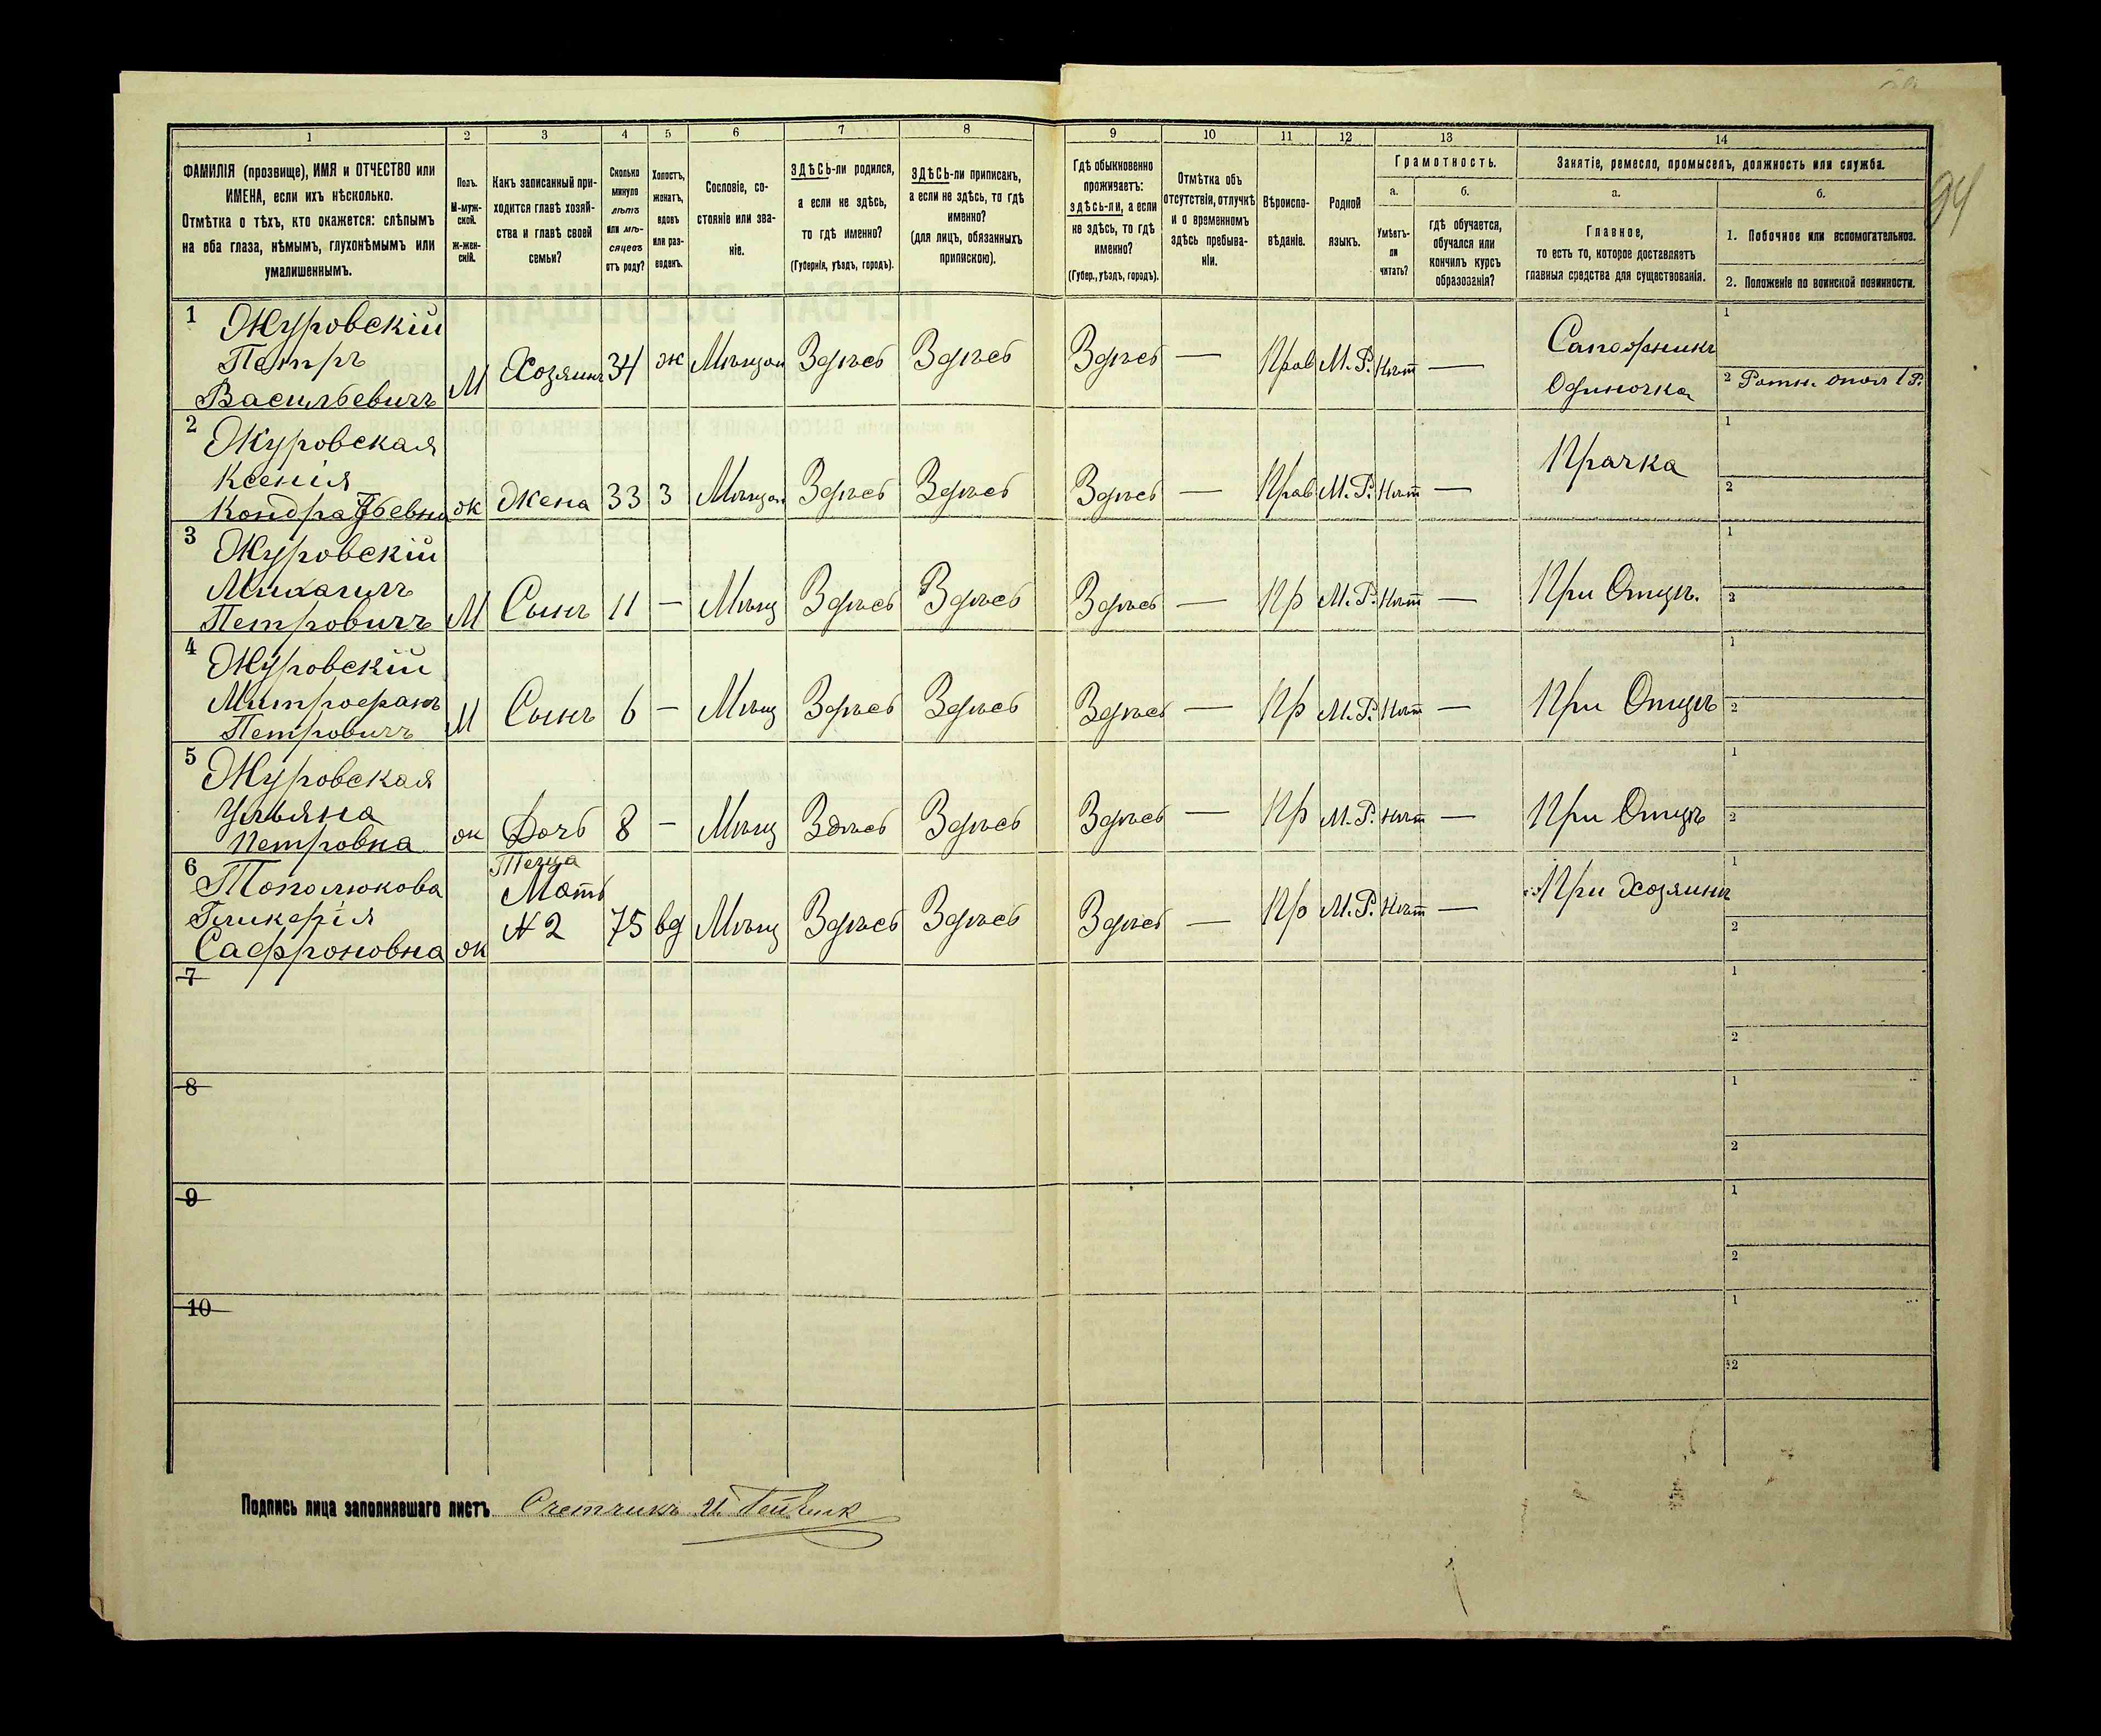 94
1
2
3
4
5
6
7
8
9
10
11
12
13
14
ФАМИЛІЯ (прозвище), ИМЯ и ОТЧЕСТВО или
ИМЕНА, если ихъ нѣсколько.
Отмѣтка о тѣхъ, кто окажется: слѣпымъ
на оба глаза, нѣмымъ, глухонѣмымъ или
умалишеннымъ.
Полъ.
М-муж-
ской.
Ж-жен-
скій.
Какъ записанный при-
ходится главѣ хозяй-
ства и главѣ своей
семьи?
Сколько
минуло
лѣтъ
или мѣ-
сяцевъ
отъ роду?
Холостъ,
женатъ,
вдовъ
или раз-
веденъ.
Сословіе, со-
стояніе или зва-
ніе.
ЗДѢСЬ-ли родился,
а если не здѣсь,
то гдѣ именно?
(Губернія, уѣздъ, городъ).
ЗДѢСЬ-ли приписанъ,
а если не здѣсь, то гдѣ
именно?
(для лицъ, обязанныхъ
припискою).
Гдѣ обыкновенно
проживаетъ:
здѣсь-ли, а если
не здѣсь, то гдѣ
именно?
(Губер., уѣздъ, городъ).
Отмѣтка объ
отсутствіи, отлучкѣ
и о временномъ
здѣсь пребыва-
ніи.
Вѣроиспо-
вѣданіе.
Родной
языкъ.
Грамотность.
а.
Умѣетъ-
ли
читать?
б.
гдѣ обучается,
обучался или
кончилъ курсъ
образованія?
Занятіе, ремесло, промыселъ, должность или служба.
а.
Главное,
то есть то, которое доставляетъ
главныя средства для существованія.
б.
1. Побочное или вспомогательное.
2. Положеніе по воинской повинности.
1 Журовскій
Петръ
Васильевичъ М Хозяинъ 34 ж Мѣщан Здѣсь Здѣсь Здѣсь — Прав М.Р. Нѣт — Сапожникъ
Одиночка
1
2 Ратн. опол 1 Р.
2 Журовская
Ксенія
Кондратьевна ж Жена 33 З Мѣщан Здѣсь Здѣсь Здѣсь — Прав М.Р. Нѣт — Прачка
1
2
3 Журовскій
Михаилъ
Петровичъ М Сынъ 11 — Мѣщ Здѣсь Здѣсь Здѣсь — Пр М.Р. Нѣт — При Отцѣ.
1
2
4 Журовскій
Митрофанъ
Петровичъ М Сынъ 6 — Мѣщ Здѣсь Здѣсь Здѣсь — Пр М.Р. Нѣт — При Отцѣ
1
2
5 Журовская
Ульяна
Петровна ж Дочь 8 — Мѣщ Здѣсь Здѣсь Здѣсь — Пр М.Р. Нѣт — При Отцѣ
1
2
6 Тополюкова
Гликерія
Сафроновна ж Теща
Мать
№ 2 75 вд Мѣщ Здѣсь Здѣсь Здѣсь — Пр М.Р. Нѣт — При Хозяинѣ
1
2
7
1
2
8
1
2
9
1
2
10
1
2
Подпись лица заполнявшаго листъ Счетчикъ И.